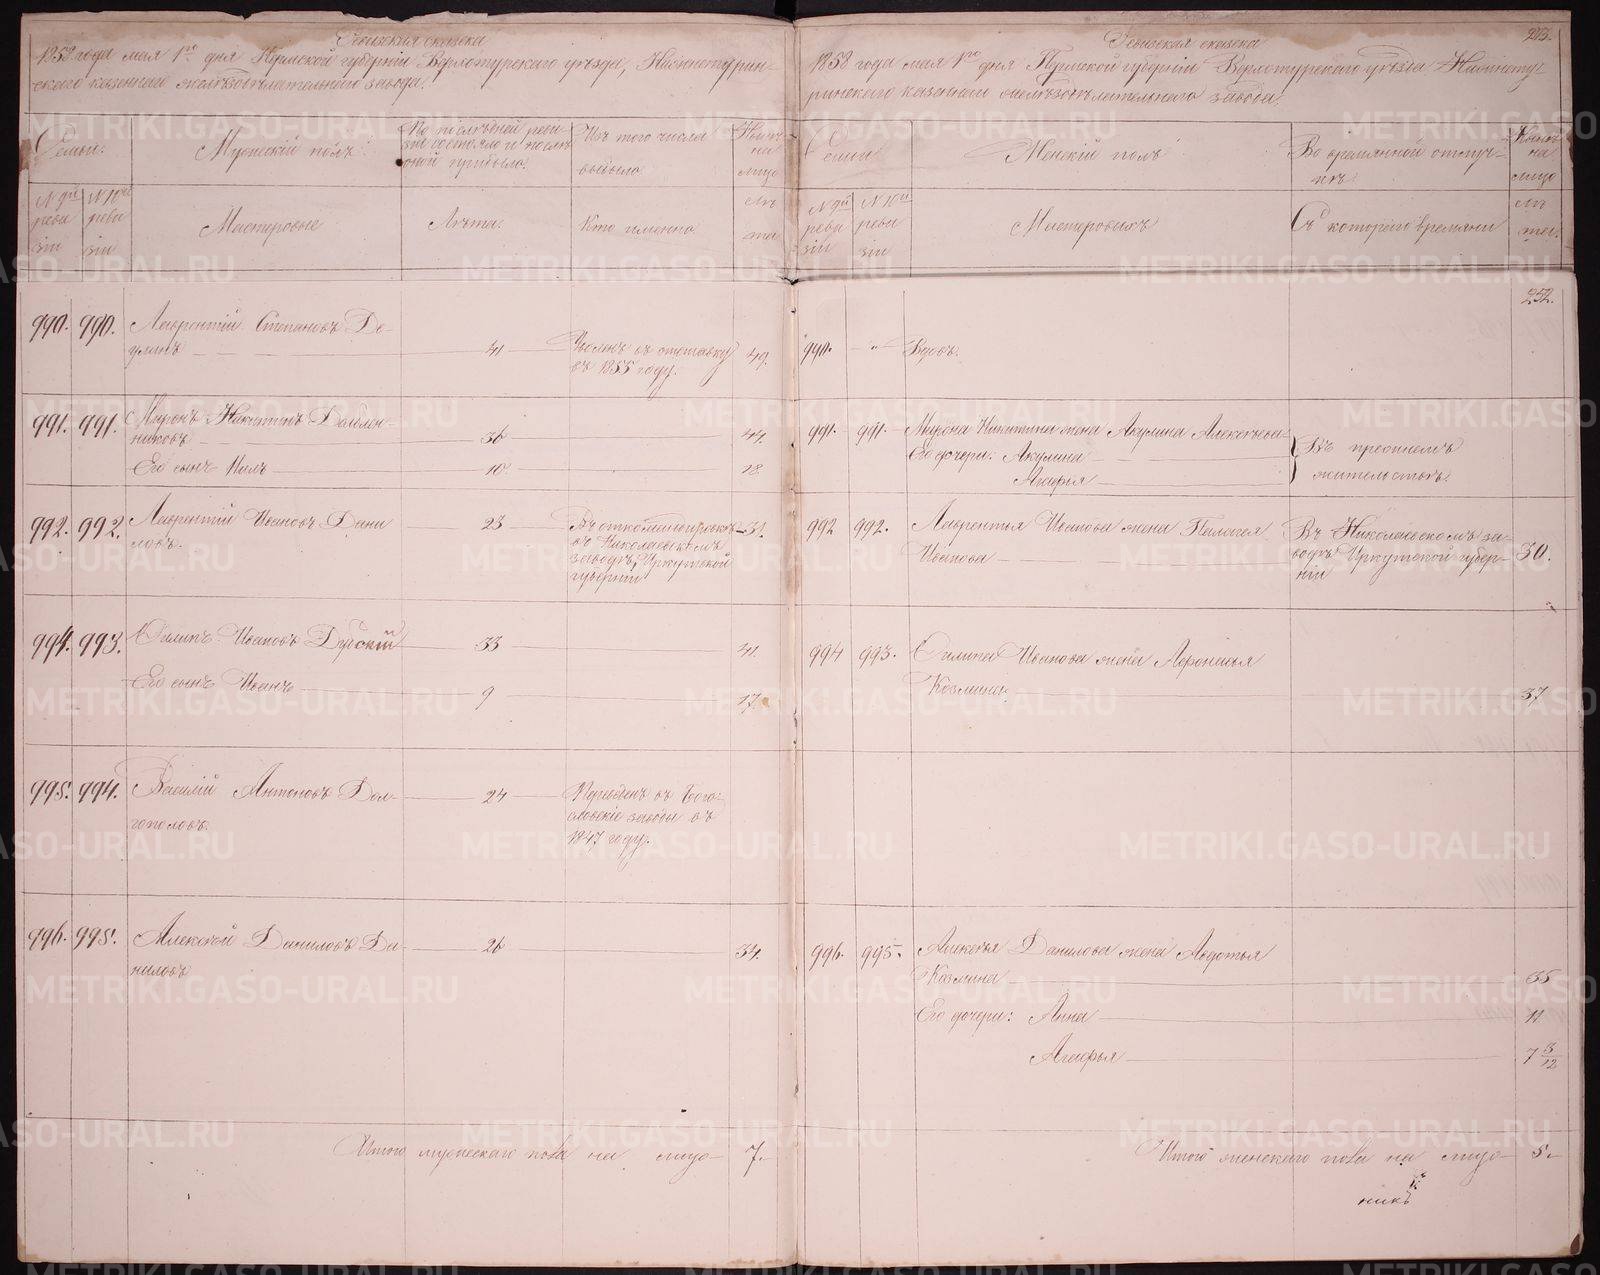 Ревизская сказка
1858 года мая 1го дня Пермской губернии Верхотурскаго уезда, Нижнетурин-
скаго казеннаго железоделательнаго завода.
Семьи.
Мужескій полъ
По последней реви-
зіи состояло и после
оной прибыло.
Изъ того числа
выбыло
Ныне
на
лицо
N 9й
реви
зіи
N 10й
реви
зіи
Мастеровые
Лета.
Кто именно
Ле
та
990. 990. Лаврентій Степановъ До-
41 Уволенъ въ отставку 49.
въ 1855 году.
991. 991. Миронъ Никитинъ
никовъ 36 44.
Его сынъ Нилъ 10 18
992. 992. Лаврентій Ивановъ Дани 23 Въ откомандировке 31.
ловъ.
въ Николаевскомъ
заводе, Иркутской
губерніи
994. 993. Филипъ Ивановъ 33 41.
Его сынъ Иванъ 9 17.
995. 994. Василій Антоновъ Дол- 24 Переведенъ въ Бого-
гополовъ.
словскіе заводы въ
1847 году.
996. 995. Алексей Даниловъ Да- 26 34.
ниловъ
Итого мужескаго пола на лицо 7.
Ревизская сказка
1858 года мая 1го дня Пермской губерніи Верхотурскаго уезда Нижнету-
ринскаго казеннаго железоделательнаго завода.
Семьи
Женскій полъ
Во временной отлуч-
ке.
Ныне
на
лицо
N 9й
реви
зіи
N 10й
реви
зіи
Мастеровыхъ
Съ котораго времяни
Ле
та.
252.
990. " Вдовъ.
991. 991. Мирона Никитина жена Акулина Алексеева
Его дочери: Акулина
Агафья
Въ прежнемъ
жительстве.
992 992. Лаврентья Иванова жена Пелагея
Иванова
Въ Николаевскомъ за-
воде Иркутской губер- 30.
ніи
994 993. Филипа Иванова жена Афронасья
Козмина 37
996. 995. Алексея Данилова жена Авдотья
Козмина 35
Его дочери: Анна 11
Агафья 7 3/12
Итого женскаго пола на лицо 5.
METRIKI.GASO-URAL.RU